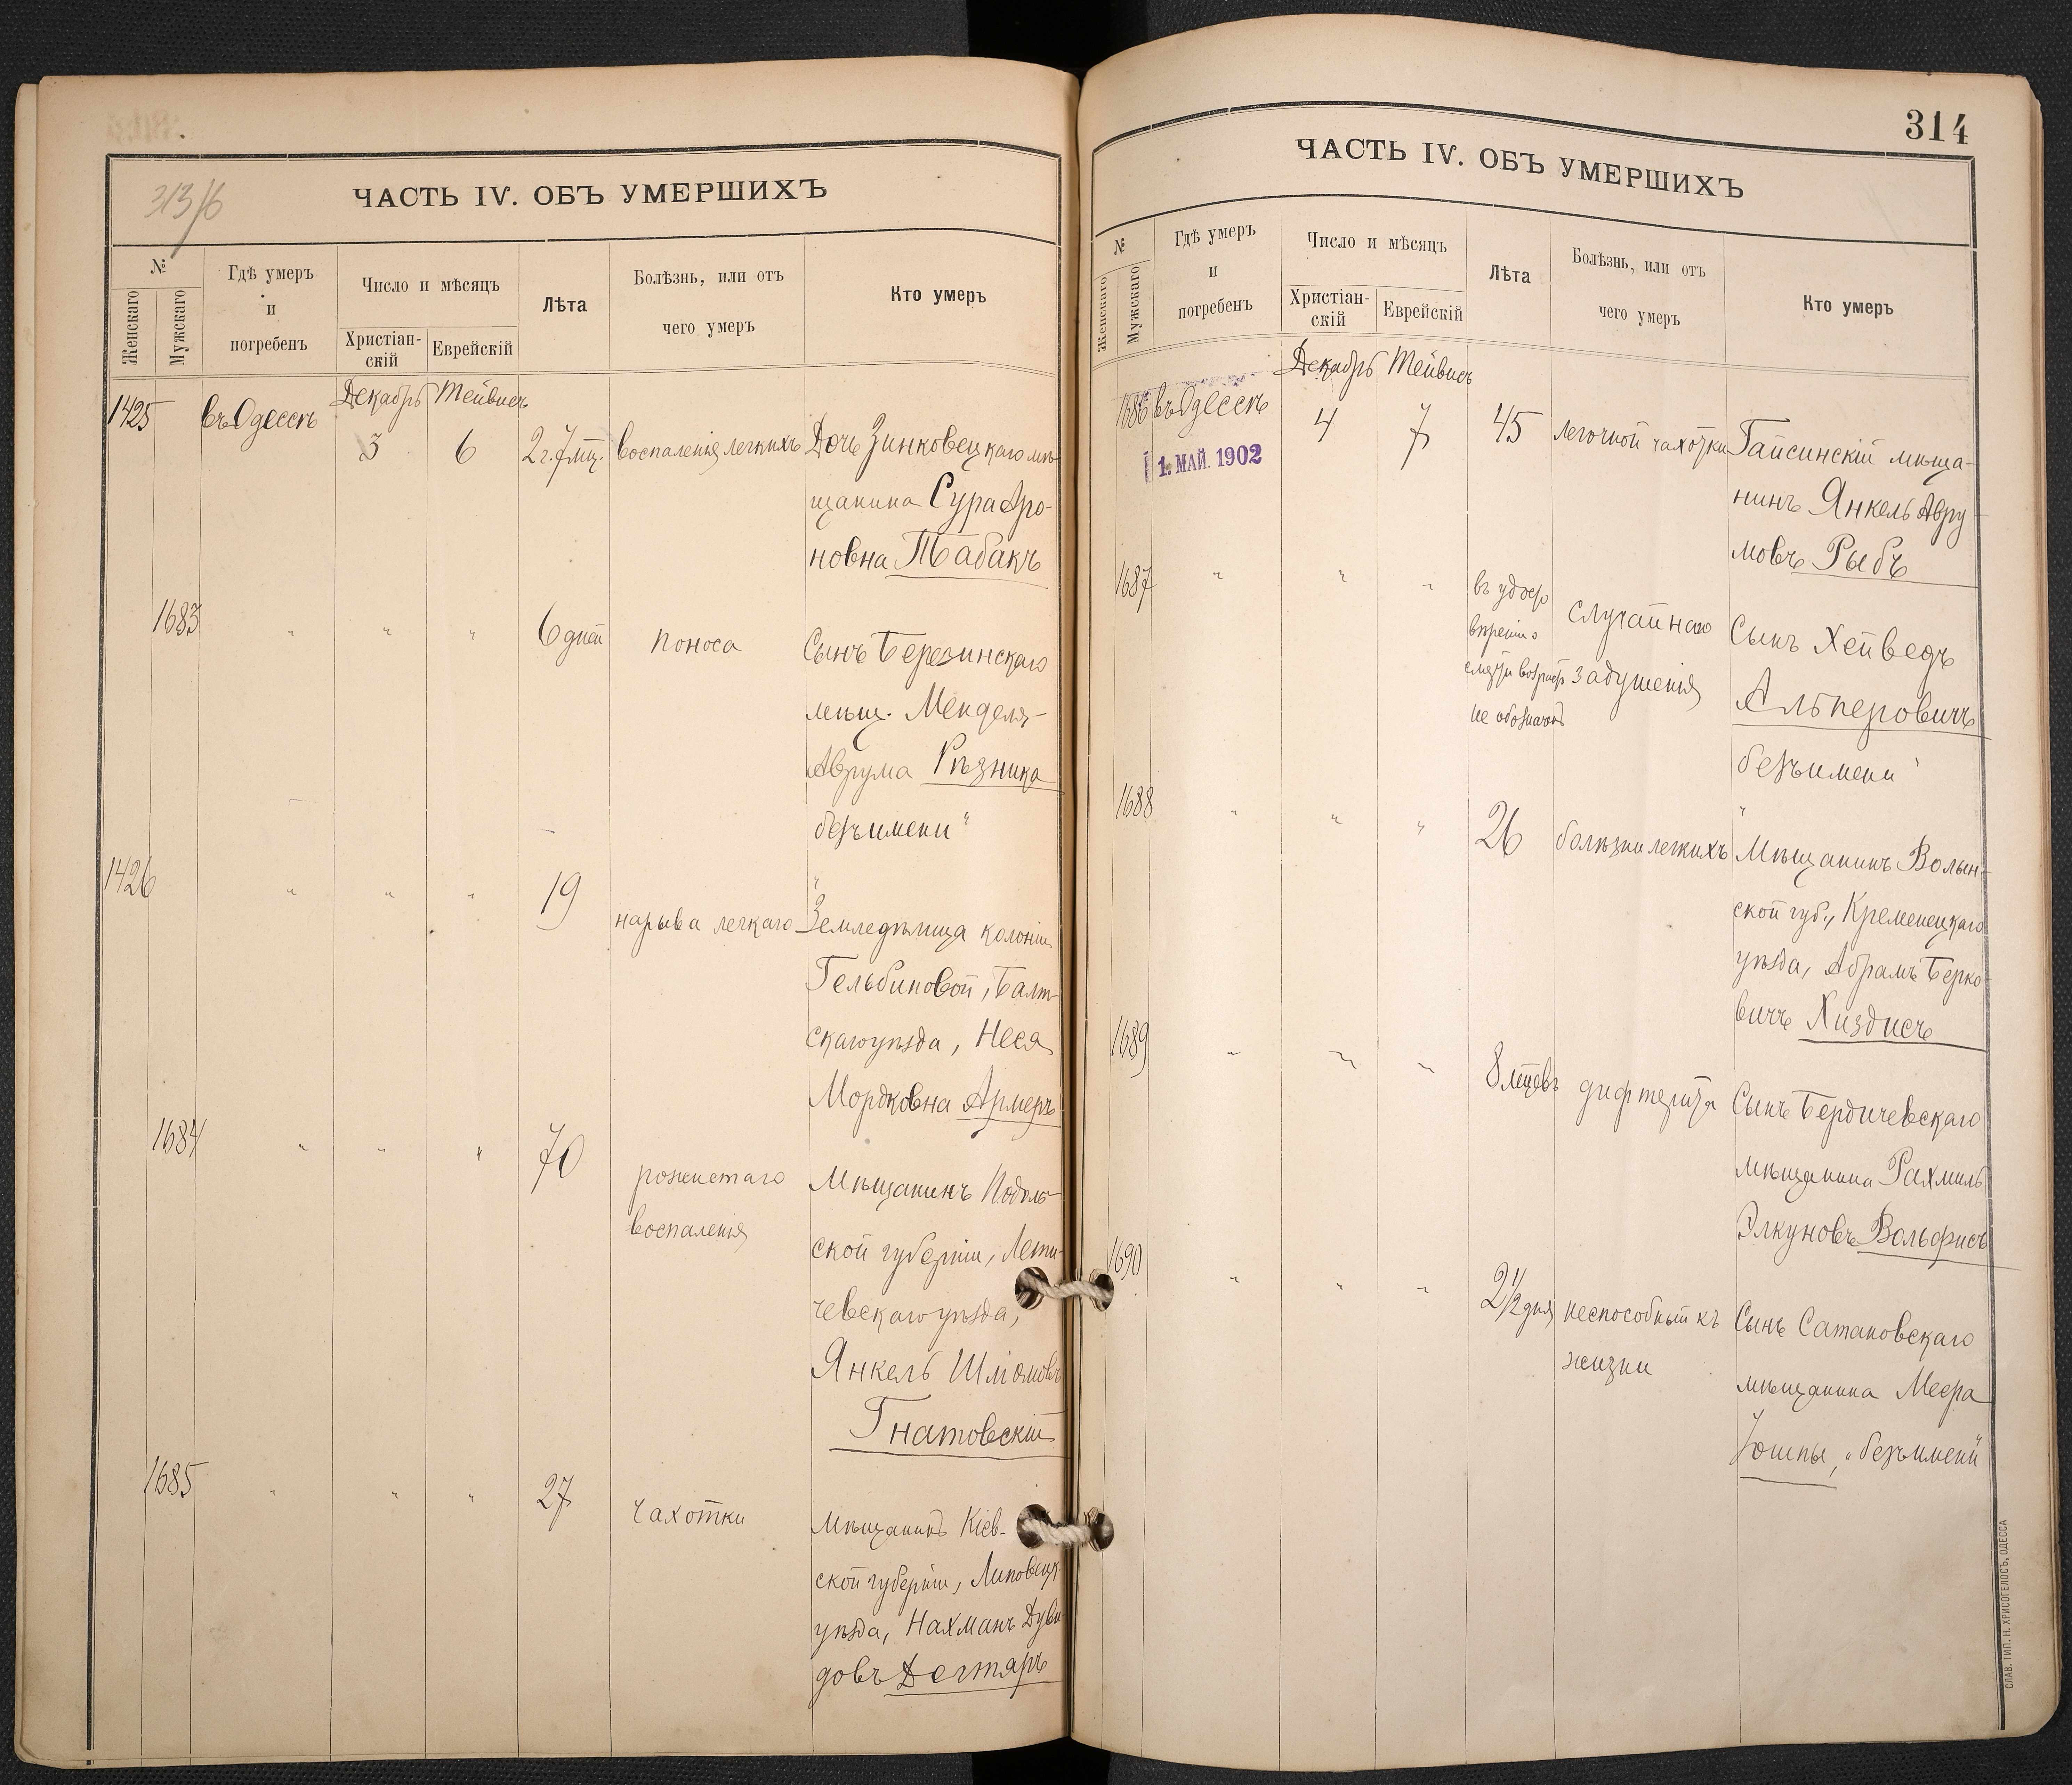 313/б
ЧАСТЬ IV. ОБЪ УМЕРШИХЪ
№
Женскаго
Мужскаго
Гдѣ умеръ
и
погребенъ
Число и мѣсяцъ
Христіан-
скій
Еврейскій
Лѣта
Болѣзнь, или отъ
чего умеръ
Кто умеръ
Декабрь Тейвисъ
1425 въ Одессѣ 3 6 2 г. 7 мц. воспаленія легкихъ Дочь Зинковецкаго мѣ-
щанина Сура Аро-
новна Табакъ
1683 " " " 6 дней поноса Сынъ Березинскаго
мѣщ. Менделя
Аврума Рѣзника
безъ имени"
1426 " " " 19 нарыва легкаго Земледѣлица колоніи
Гельбиновой, Балт-
скаго уѣзда, Неся
Мордковна Армеръ
1684 " " " 70 рожистаго Мѣщанинъ Подоль-
воспаленія ской губерніи, Лети-
чевскаго уѣзда,
Янкель Шліомовъ
Гнатовскій
1685 " " " 27 чахотки Мѣщанинъ Кіев-
ской губерніи, Липовецк.
уѣзда, Нахманъ Дуви-
довъ Дегтяръ
314
ЧАСТЬ IV. ОБЪ УМЕРШИХЪ
№
Женскаго
Мужскаго
Гдѣ умеръ
и
погребенъ
Число и мѣсяцъ
Христіан-
скій
Еврейскій
Лѣта
Болѣзнь, или отъ
чего умеръ
Кто умеръ
Декабрь Тейвисъ
1686 въ Одессѣ 4 7 45 легочной чахотки Гайсинскій мѣща-
1. МАЙ. 1902
нинъ Янкель Авру-
мовъ Рыбъ
1687 " " " въ случайнаго Сынъ Хейведъ
задушенія Альперовичъ
не обозначенъ
безъ имени"
1688 " " " 26 болѣзни легкихъ Мѣщанинъ Волын-
ской губ., Кременецкаго
уѣзда, Абрамъ Берко-
вичъ Хиздисъ
1689 " " " 8 мцевъ дифтерита Сынъ Бердичевскаго
мѣщанина Рахмиль
Элкуновъ Вольфисъ
1690 " " " 2 1/2 дня неспособный къ Сынъ Сатановскаго
жизни мѣщанина Меера
Юшпы, "безъ имени"
СЛАВ. ТИП. Н. ХРИСОГЕЛОСЪ, ОДЕССА